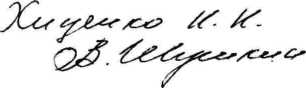 Хиценко И. И.
В. Шушкин